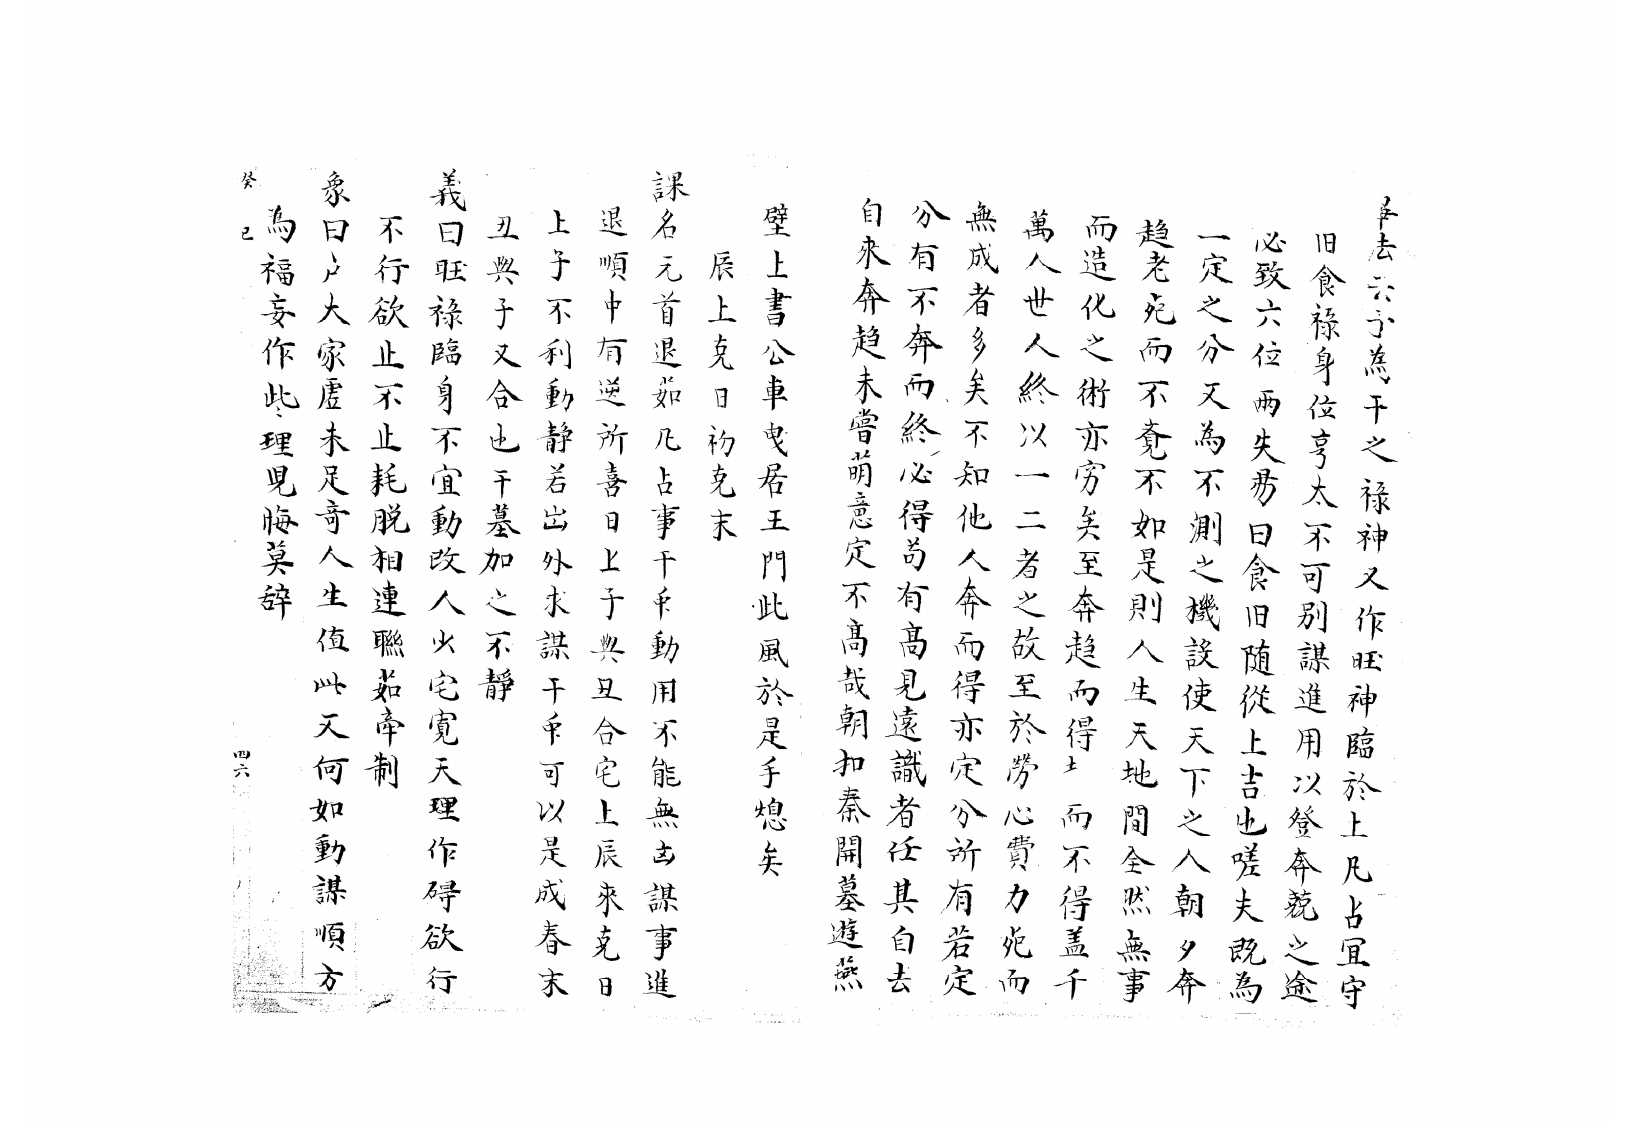 爭去六予為干之祿神又作旺神臨於上凡占宜守
旧食祿身位亨太不可别謀進用以登奔兢之途
必致六位兩失易曰食旧随從上吉也嗟夫既為
一定之分又為不測之機設使天下之人朝夕奔
趋老死而不竟不如是則人生天地間全然無事
而造化之術亦穷矣至奔趋而得士而不得盖千
萬人世人終以一二者之故至於勞心費力死而
無成者多矣不知他人奔而得亦定分所有若定
分有不奔而終必得苟有高見遠識者任其自去
自來奔趋未嘗萌意定不高哉朝扣秦開墓遊燕
壁上書公車曳居王門此風於是乎熄矣
辰上克日初克末
課名元首退茹凡占事干用動用不能無凶謀事進
退順中有逆所喜日上子與丑合宅上辰來克日
上子不利動静若出外求謀干用可以是成春末
丑與子又合也干墓加之不静
義曰旺祿臨身不宜動改人火宅寛天理作碍欲行
不行欲止不止耗脱相連聯茹牵制
象曰户大家虚未足奇人生值此又何如動謀順方
為福妄作此理見悔莫辞
癸巳
四六